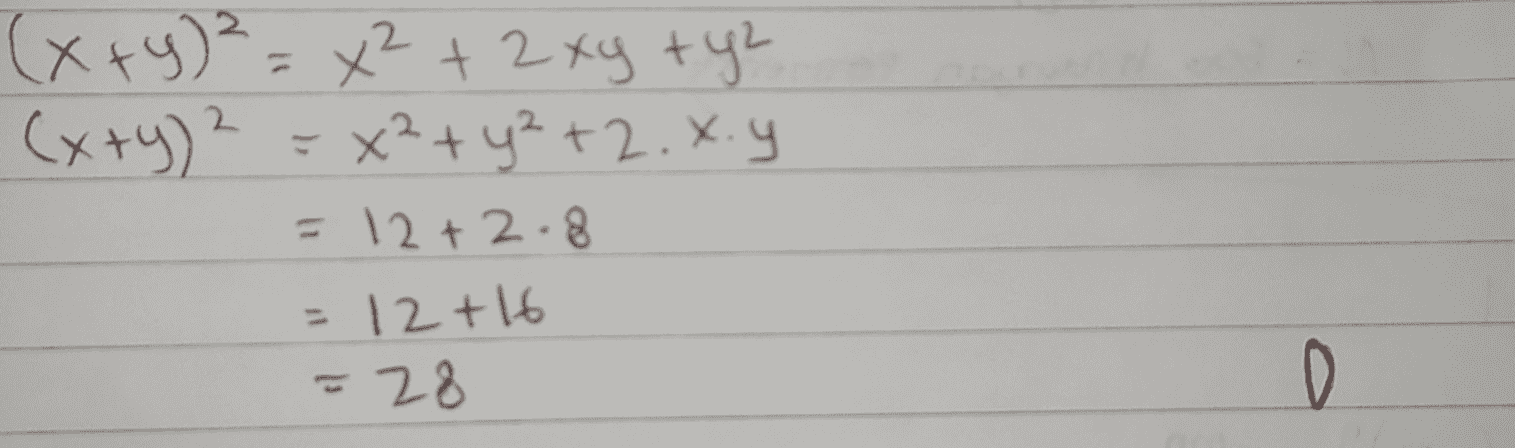 (x+y)² = x² + 2xy + y²
(x+y)² = x² + y² + 2.x.y
= 12 + 2.8
= 12 + 16
= 28
D